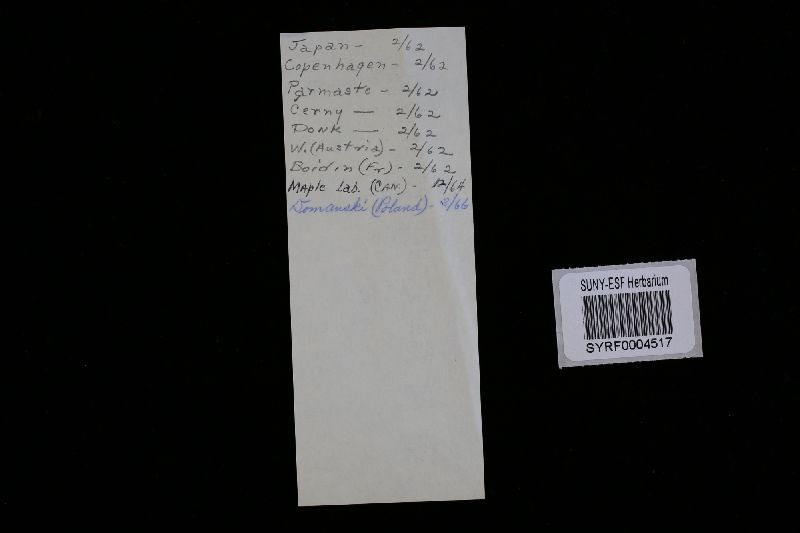 Japan - 2/62
Copenhagen - 2/62
Parmasto - 2/62
Cerny — 2/62
Donk — 2/62
W. (Austria) - 2/62
Boidin (Fr) - 2/62
Maple Lab. (CAN.) - 12/64
Domanski (Poland) - 2/66
SUNY-ESF Herbarium
SYRF0004517